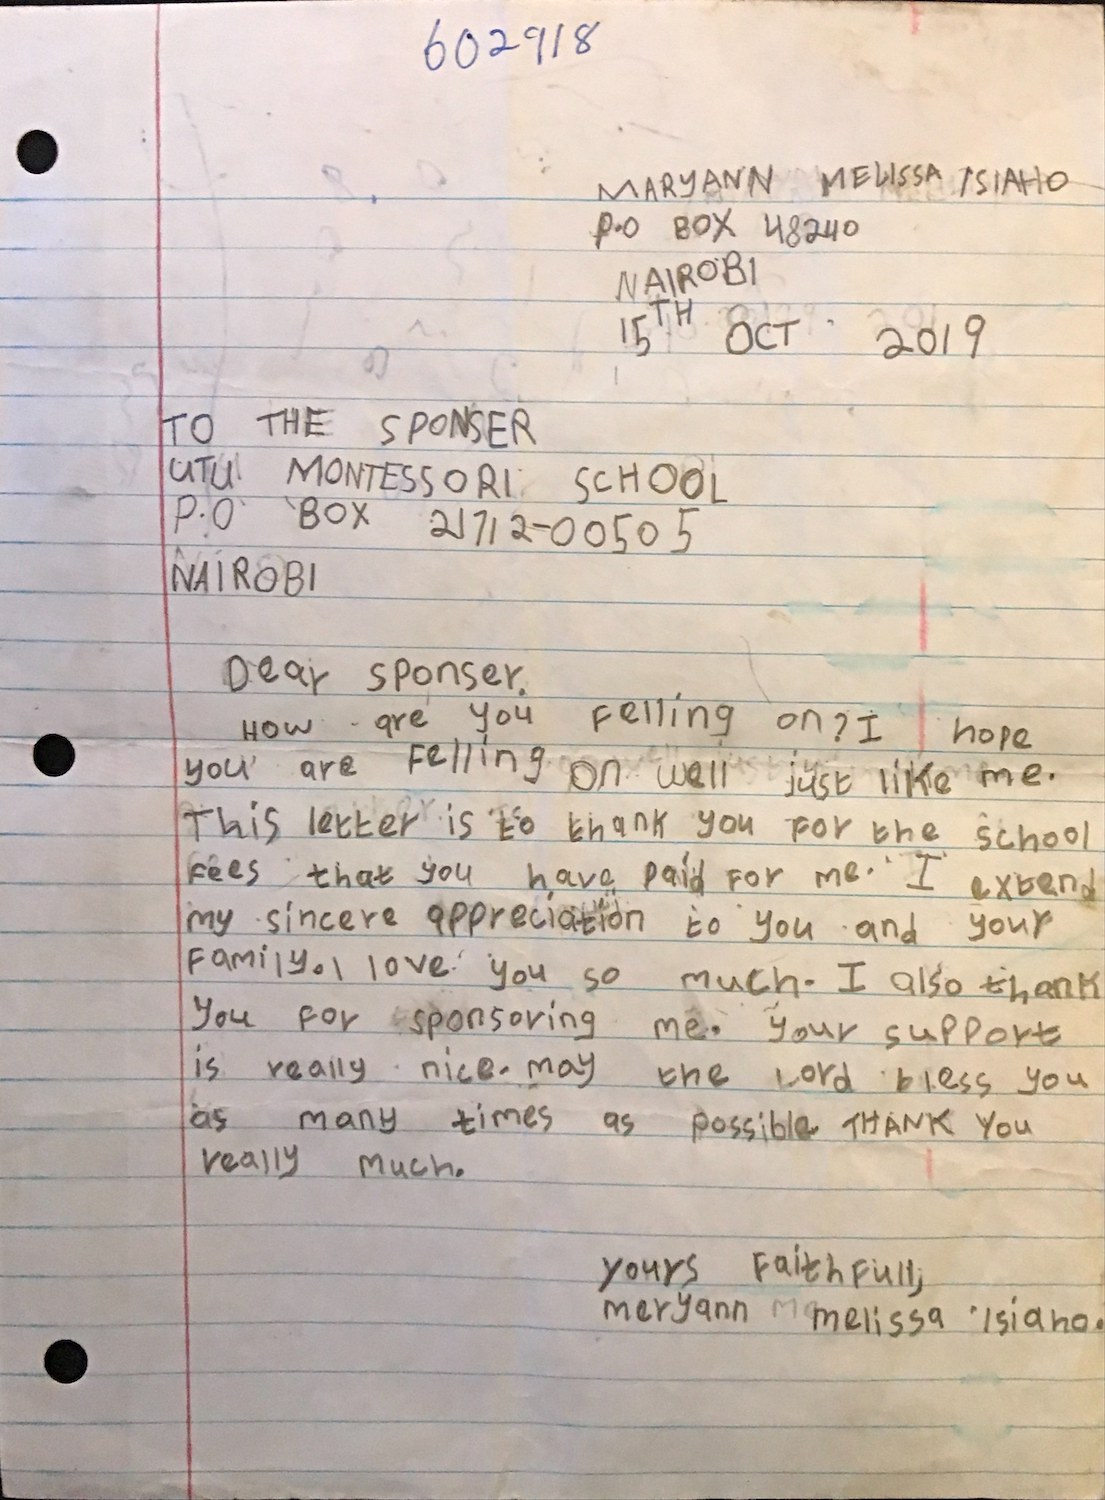 602918
MARYANN MELISSA ISIAHO
P.O BOX 48240
NAIROBI
15TH OCT 2019
TO THE SPONSER
UTU MONTESSORI SCHOOL
P.O BOX 21712-00505
NAIROBI
Dear sponser.
How are you Felling on? I hope
you are Felling on well just like me.
This letter is to thank you for the school
Fees that you have paid For me. I extend
my sincere appreciation to you and your
Family. I love you so much. I also thank
you For sponsoring me. Your support
is really nice. may the Lord bless you
as many times as possible THANK YOU
really much.
yours Faithfull,
meryann melissa Isiaho.